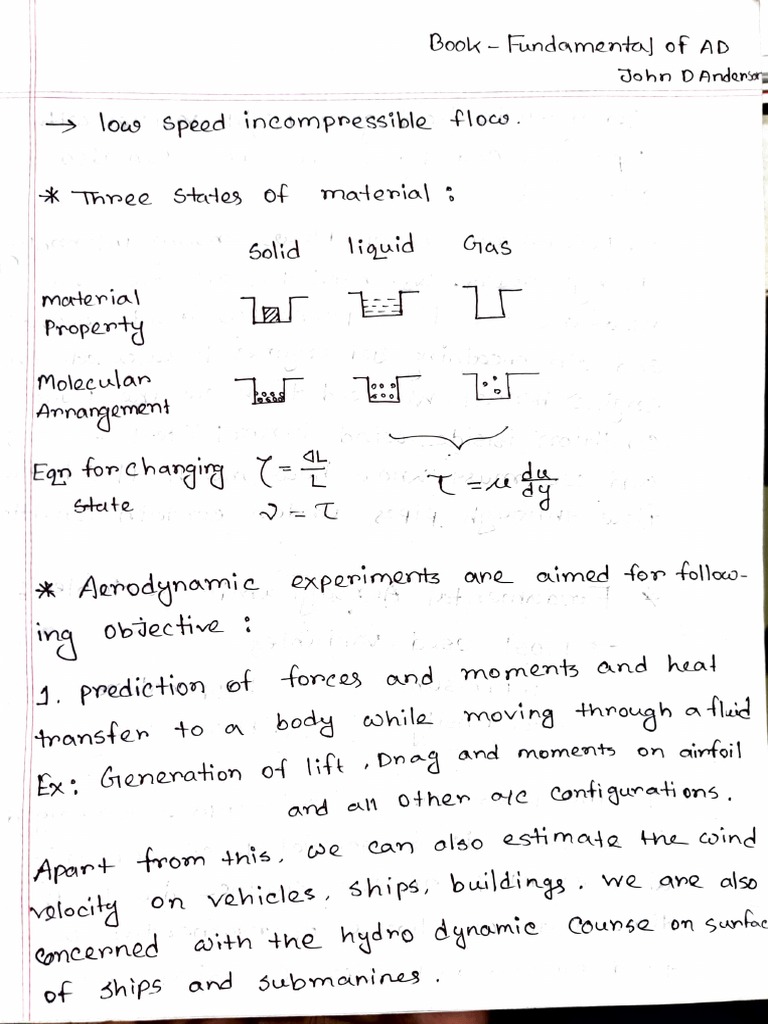 Book - Fundamental of AD
John D Anderson
→ low speed incompressible flow.
* Three states of material :
Solid liquid Gas
Material
Property
Molecular
Arrangement
Eqn for changing τ = ΔL/L τ = μ du/dy
state ν = τ
* Aerodynamic experiments are aimed for follow-
ing objective :
1. prediction of forces and moments and heat
transfer to a body while moving through a fluid
Ex: Generation of lift, Drag and moments on airfoil
and all other a/c configurations.
Apart from this, we can also estimate the wind
velocity on vehicles, ships, buildings. we are also
concerned with the hydro dynamic course on surfac
of ships and submarines.